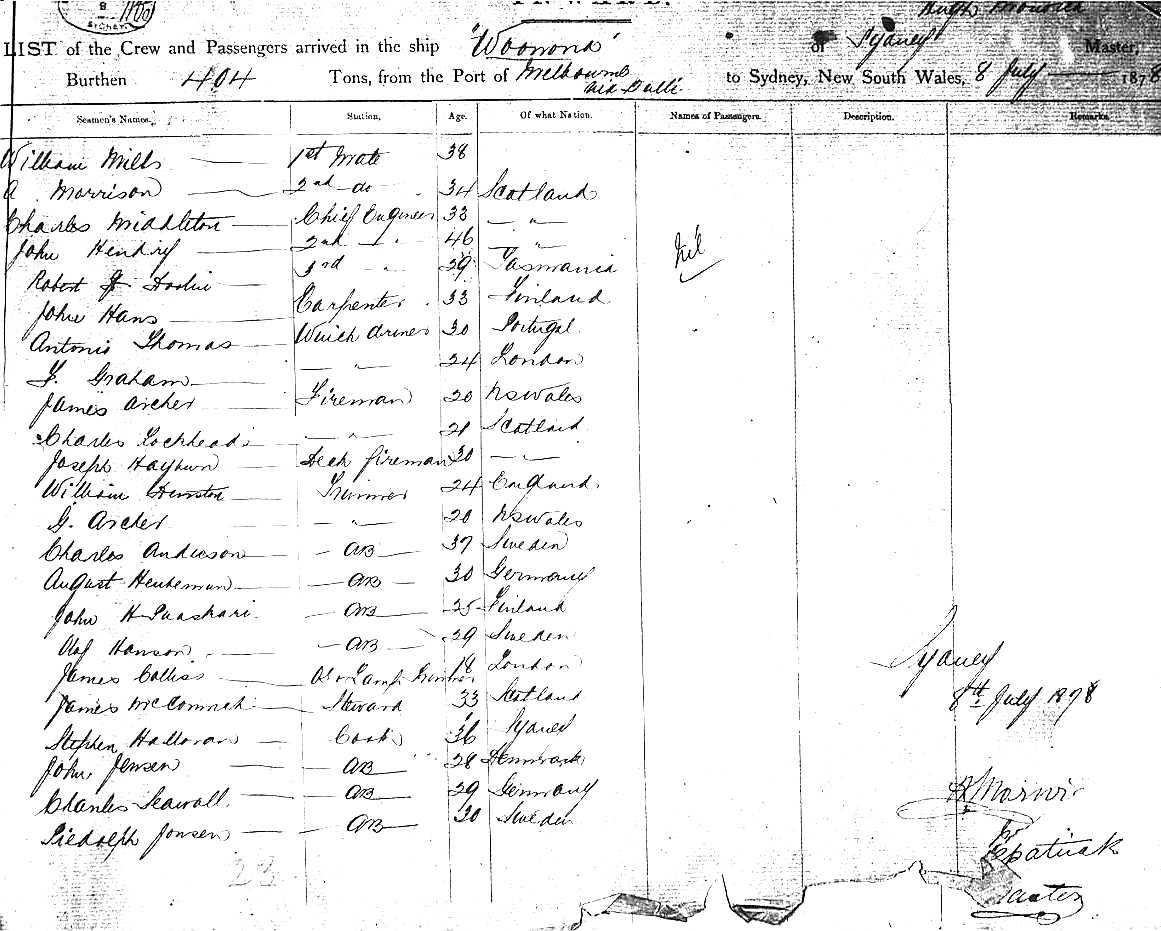 INWARD.
LIST of the Crew and Passengers arrived in the ship "Woonona" of Sydney Master,
Burthen 404 Tons, from the Port of Melbourne to Sydney, New South Wales, 8 July 1878
Seamen's Names. Station, Age. Of what Nation. Names of Passengers. Description. Remarks.
William Mills 1st Mate 38
A Morrison 2nd do 34 Scotland
Charles Middleton Chief Engineer 33 — " —
John Hendry 2nd — " 46 — " —
Robert 3rd " 29 Tasmania
Nil
John Hans Carpenter 33 Finland
Antonio Thomas Winch driver 30 Portugal
Graham — " — 24 London
James Archer Fireman 20 NSWales
Charles Lockhead — " — 21 Scotland
Joseph Hayburn Deck fireman 30 — " —
William Trimmer 24 England
G. Archer — " — 20 NSWales
Charles Anderson AB 37 Sweden
August AB 30 Germany
John H AB 25 Finland
Olaf Hanson AB 29 Sweden
James Colliss OS & Lamp Trimmer 18 London
James Steward 33 Scotland
Stephen Halloran Cook 36 Sydney
John Jensen AB 28 Denmark
Charles Seawall AB 29 Germany
Jonsen AB 30 Sweden
Sydney
8th July 1878
23